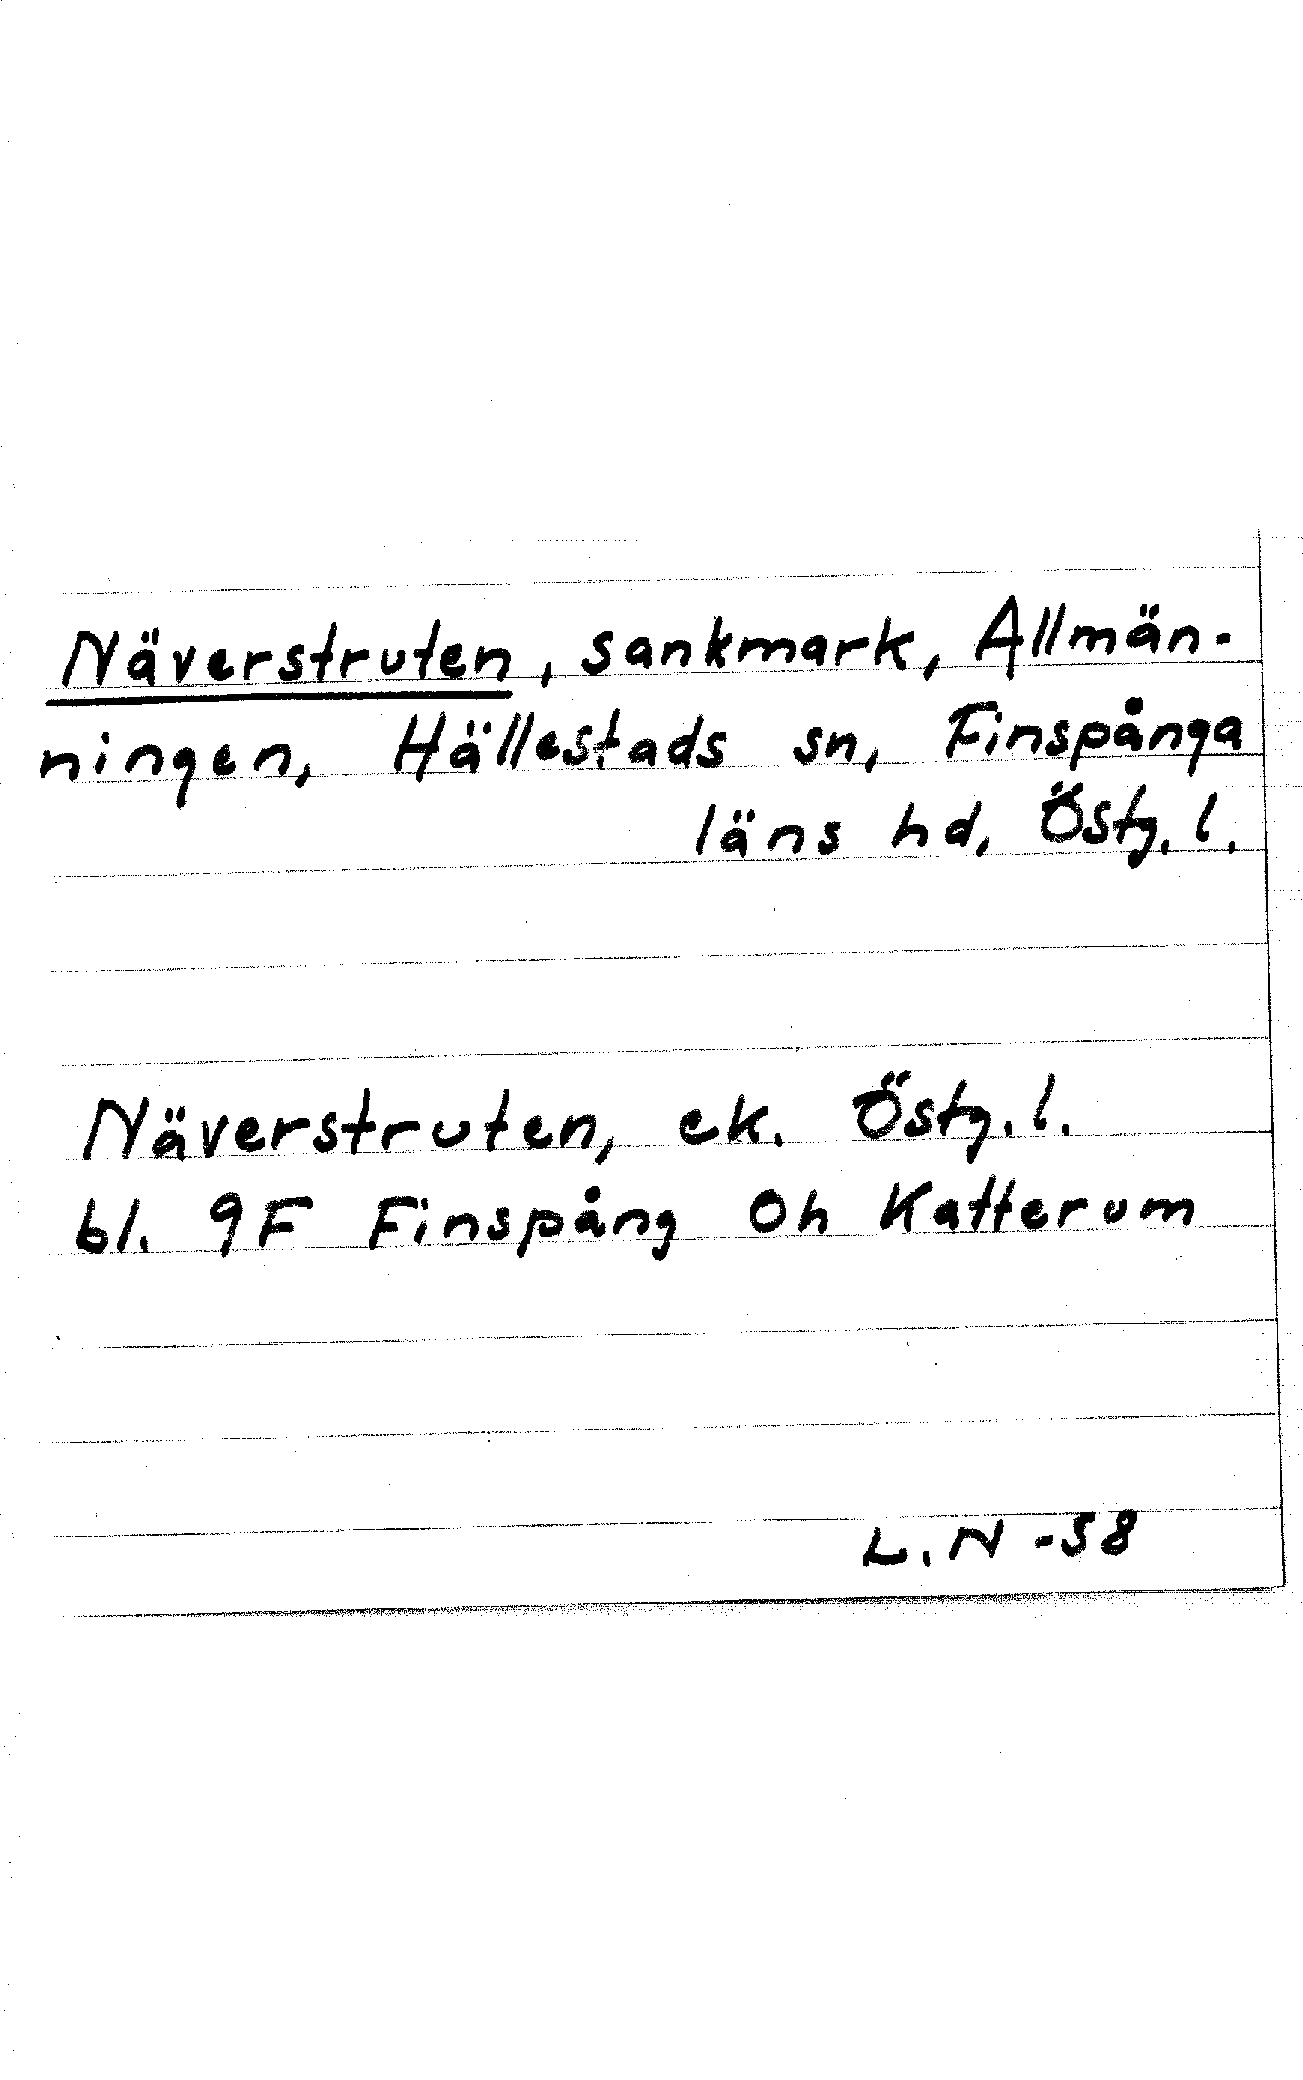 Näverstruten, sankmark, Allmän-
ningen, Hällestads sn, Finspånga
läns hd, Östg. l.
Näverstruten, ek. Östg. l.
bl. 9F Finspång 0h Katterum
L.N -58